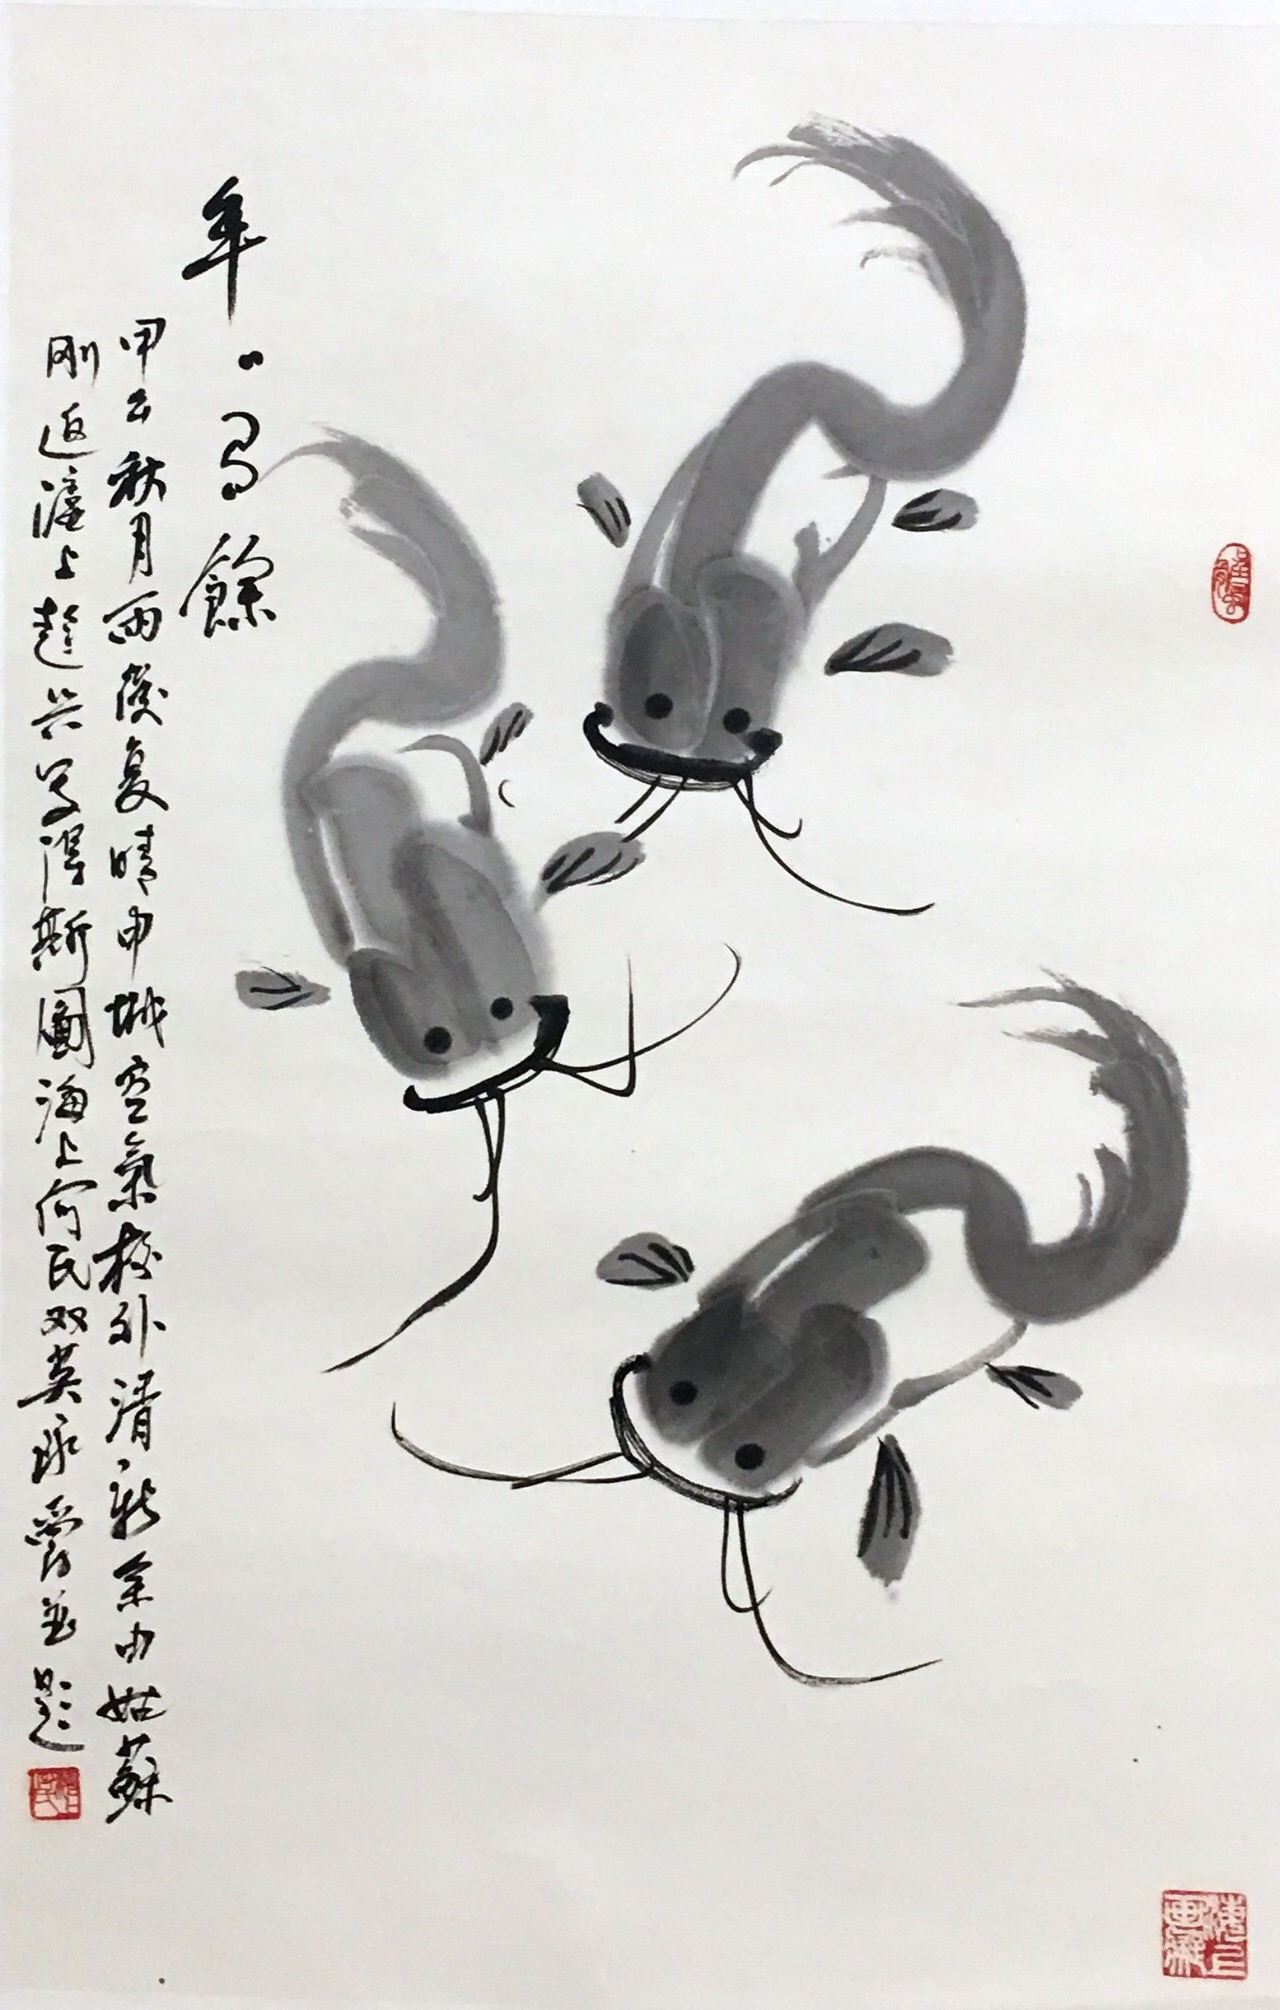 年〻有餘
甲午秋月雨後复晴申城空氣格外清新余由姑蘇
剛返滬上趁兴写得斯圖海上何民双英 並題